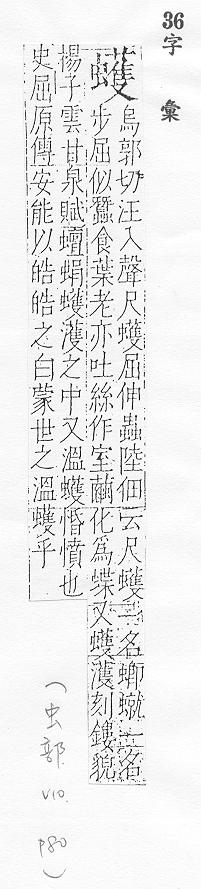 36
字彙
蠖 烏郭切汪入聲尺蠖屈伸蟲陸佃云尺蠖一名蝍䗥一名
步屈似蠶食葉老亦吐絲作室繭化為蝶又蠖濩刻鏤貌
揚子雲甘泉賦蟺蜎蠖濩之中又溫蠖惛憒也
史屈原傳安能以皓皓之白蒙世之溫蠖乎
(虫部
V10.
P80)